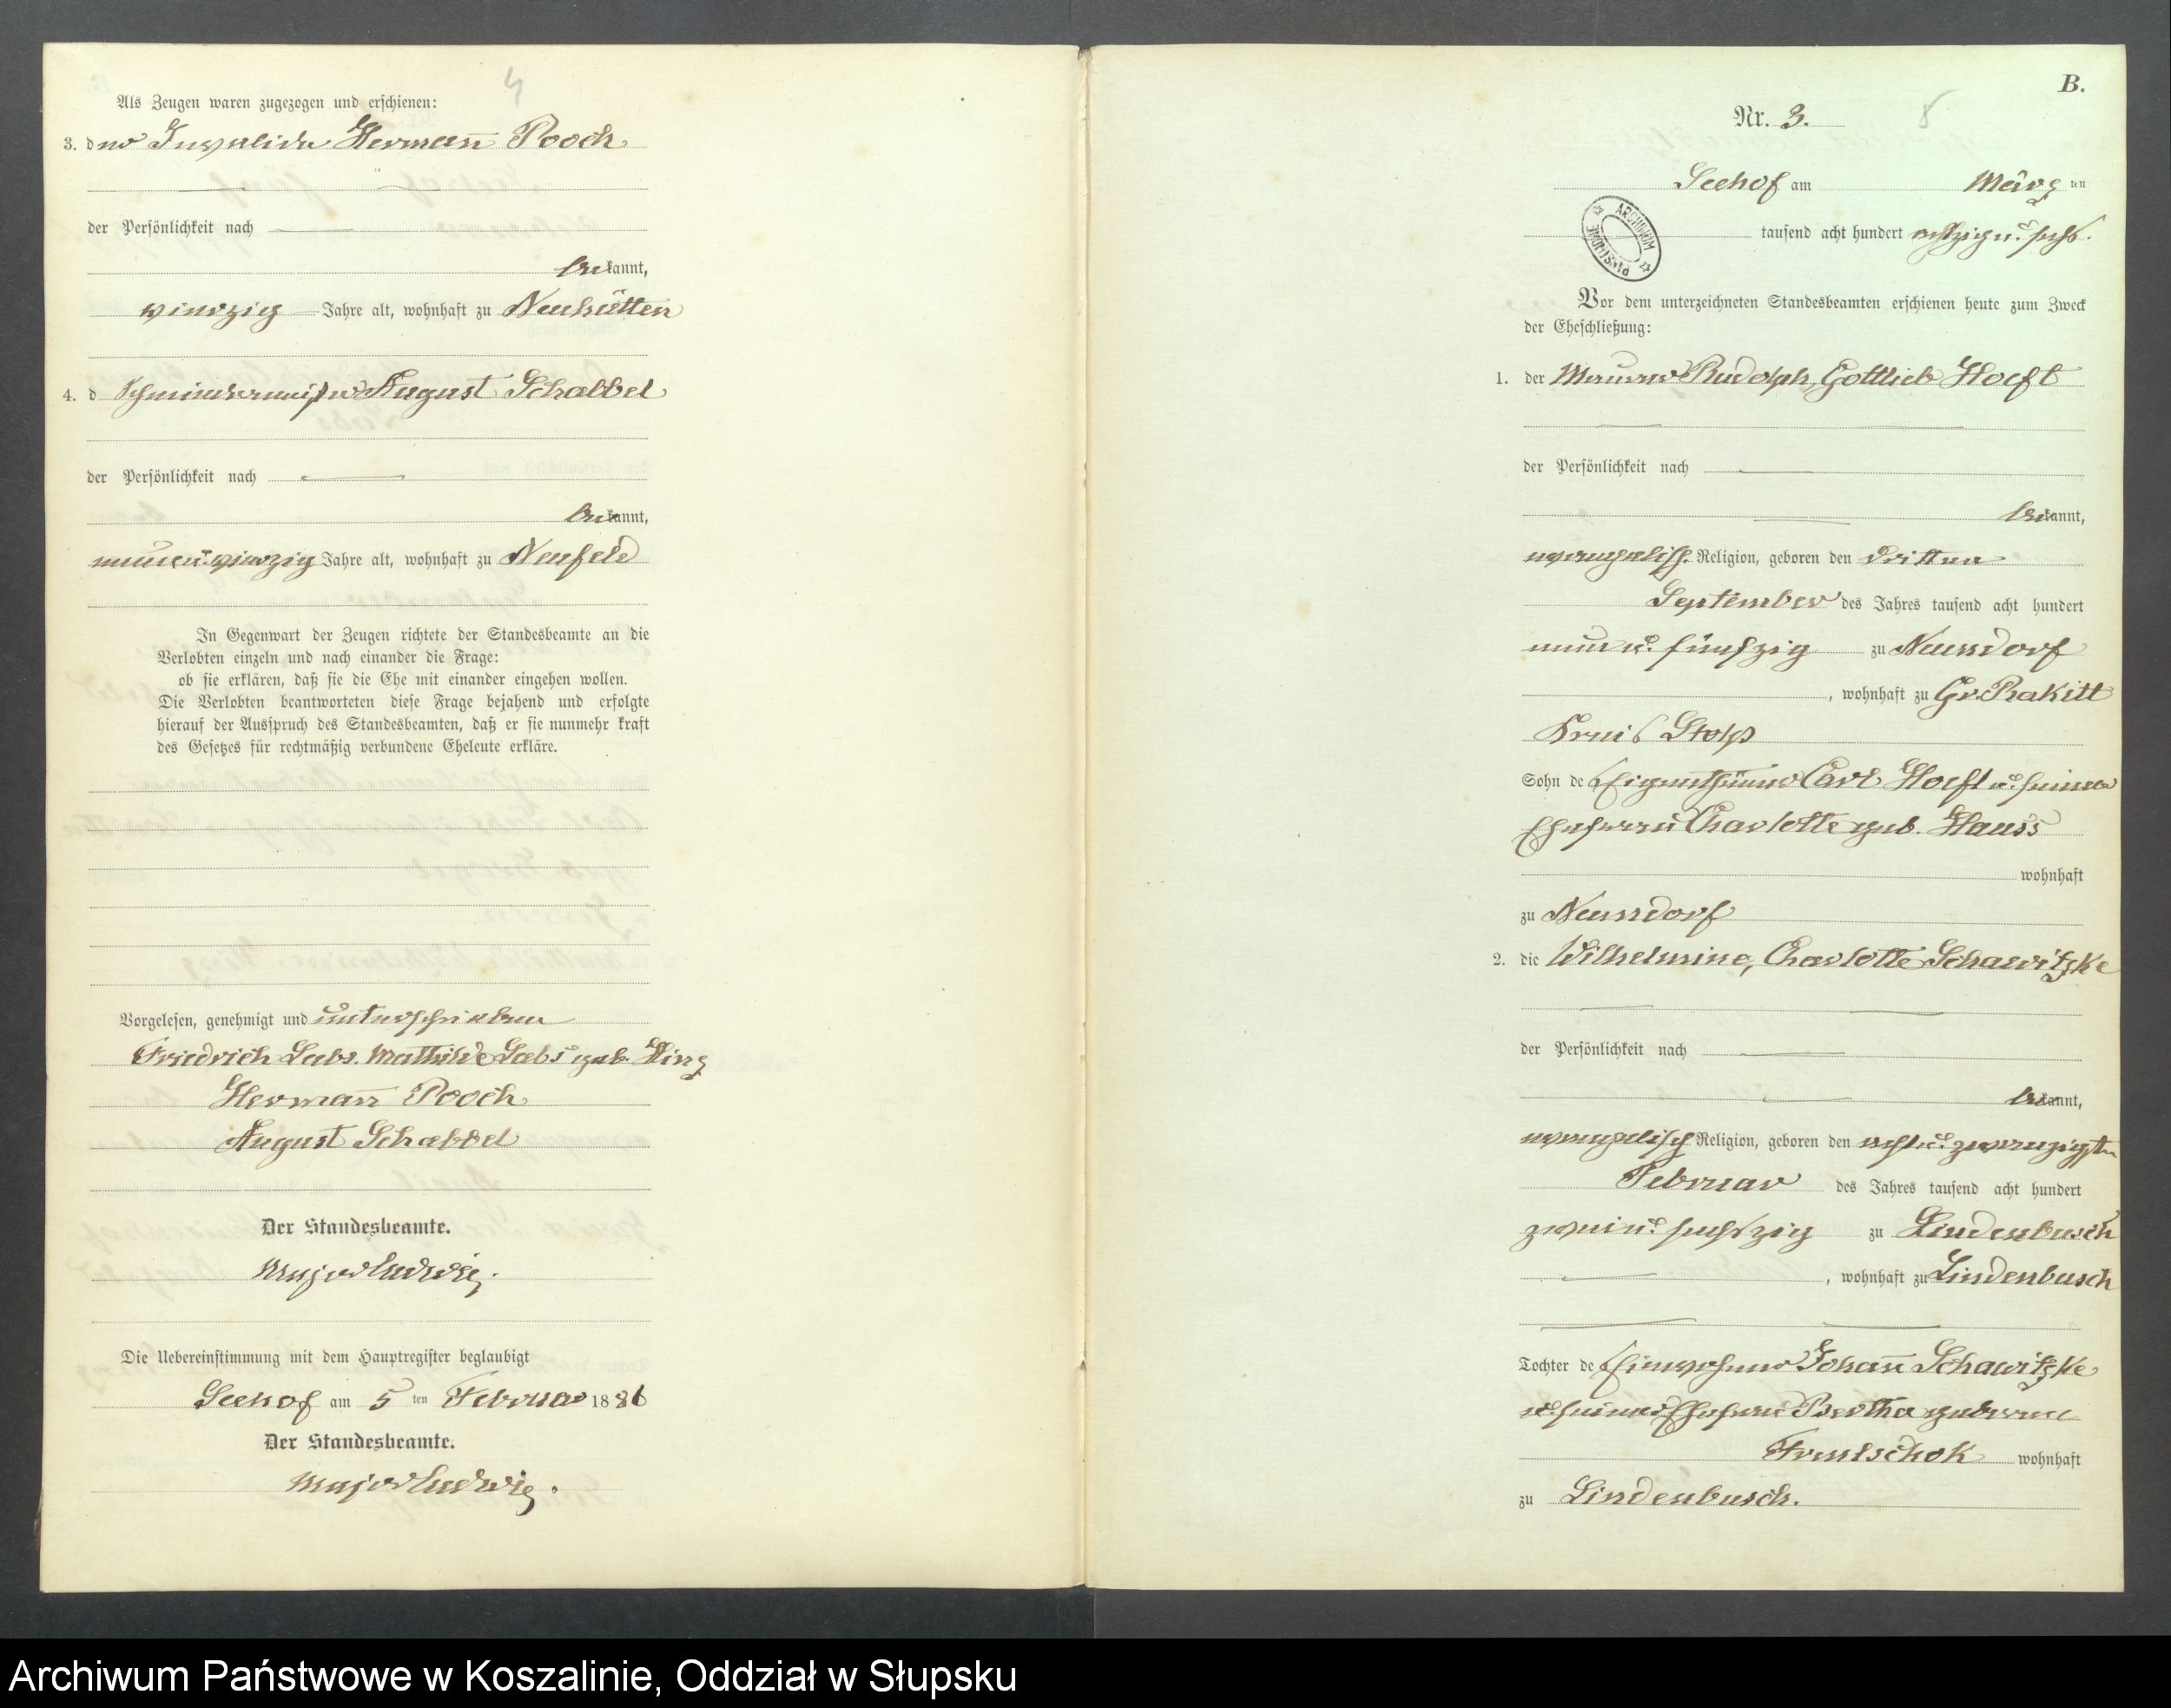 4
Als Zeugen waren zugezogen und erschienen:
3. der Invalide Hermann Pooch
der Persönlichkeit nach
bekannt,
vierzig Jahre alt, wohnhaft zu Neuhütten
4. d Schmiedemeister August Schabbel
der Persönlichkeit nach
bekannt,
neun u. vierzig Jahre alt, wohnhaft zu Neufeld
In Gegenwart der Zeugen richtete der Standesbeamte an die
Verlobten einzeln und nach einander die Frage:
ob sie erklären, daß sie die Ehe mit einander eingehen wollen.
Die Verlobten beantworteten diese Frage bejahend und erfolgte
hierauf der Ausspruch des Standesbeamten, daß er sie nunmehr kraft
des Gesetzes für rechtmäßig verbundene Eheleute erkläre.
Vorgelesen, genehmigt und unterschrieben
Friedrich Labs. Mathilde Labs geb. Hinz
Hermann Pooch
August Schabbel
Der Standesbeamte.
Major Ludwig.
Die Uebereinstimmung mit dem Hauptregister beglaubigt
Seehof am 5 ten Februar 1886
Der Standesbeamte.
Major Ludwig.
B.
Nr. 3.
Seehof am März ten
tausend acht hundert achtzig u. sechs.
ARCHIWUM PAŃSTWOWE
Vor dem unterzeichneten Standesbeamten erschienen heute zum Zweck
der Eheschließung:
1. der Maurer Rudolph, Gottlieb Hoeft
der Persönlichkeit nach
bekannt,
evangelisch. Religion, geboren den dritten
September des Jahres tausend acht hundert
neun u. fünfzig zu Neundorf
, wohnhaft zu Gr. Rakitt
Kreis Stolp
Sohn de Eigenthümer Carl Hoeft u. seiner
Ehefrau Charlotte geb. Hauss
wohnhaft
zu Neundorf
2. die Wilhelmine, Charlotte Schawitzke
der Persönlichkeit nach
bekannt,
evangelisch Religion, geboren den acht u. zwanzigsten
Februar des Jahres tausend acht hundert
zwei u. sechszig zu Lindenbusch
, wohnhaft zu Lindenbusch
Tochter de Einwohner Johann Schawitzke
u. seiner Ehefrau Bertha geborene
Frentschok wohnhaft
zu Lindenbusch.
Archiwum Państwowe w Koszalinie, Oddział w Słupsku